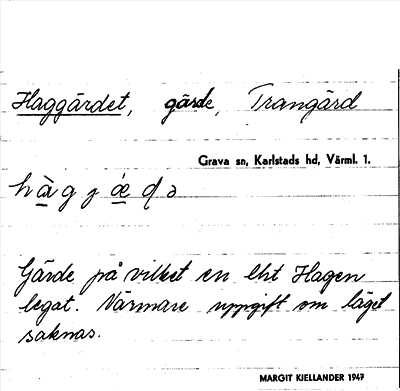 Haggärdet, gärde, Trangärd
Grava sn, Karlstads hd, Värml. 1.
Gärde på vilket en lht Hagen
legat. Närmare uppgift om läget
saknas.
MARGIT KIELLANDER 1947